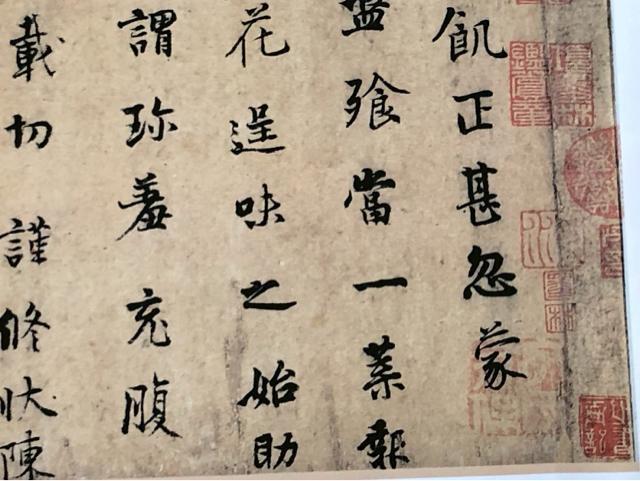 飢正甚忽蒙
盤飱當一葉報
花逞味之始助
謂珍羞充腹
載切謹脩狀陳